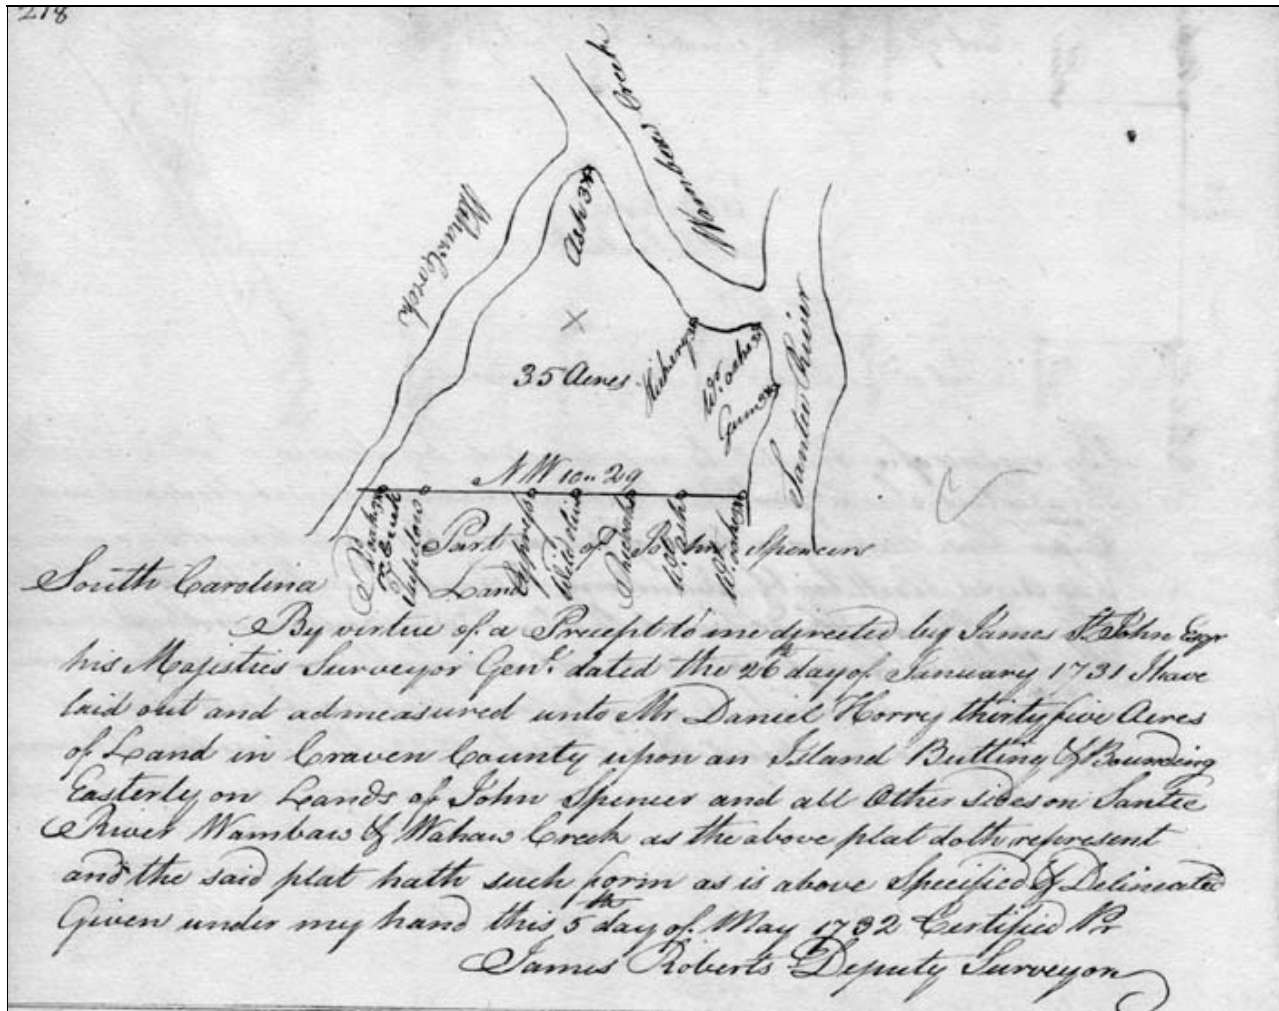 218
Wambaw Creek
Wahaw Creek
Ash 3x
35 Acres
Hickery
Wr. oak 3x
Gum 3x
Santee River
NW 10.. 29
Tupelow
Cypress
Wild olive
Wr. Ash
Part of John Spencers
Land
South Carolina
By virtue of a Precept to me directed by James St. John Esqr
his Majesties Surveyor Genl. dated the 26th day of January 1731 I have
laid out and admeasured unto Mr Daniel Horry thirty five Acres
of Land in Craven County upon an Island Butting & Bounding
Easterly on Lands of John Spencer and all Other sides on Santee
River Wambaw & Wahaw Creek as the above plat doth represent
and the said plat hath such form as is above Specified & Delineated
Given under my hand this 5th day of May 1732 Certified Pr
James Roberts Deputy Surveyor